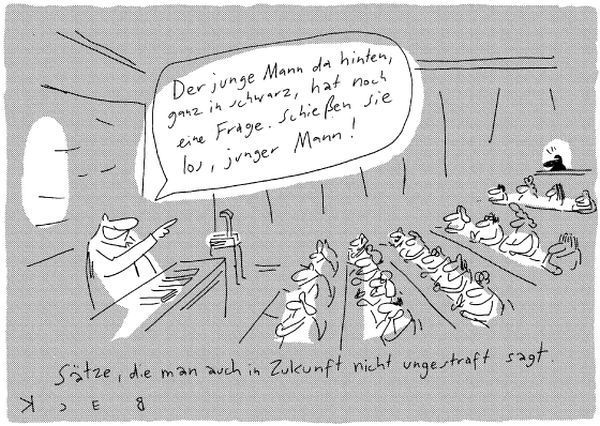 Der junge Mann da hinten,
ganz in schwarz, hat noch
eine Frage. Schießen sie
los, junger Mann!
Sätze, die man auch in Zukunft nicht ungestraft sagt.
BECK